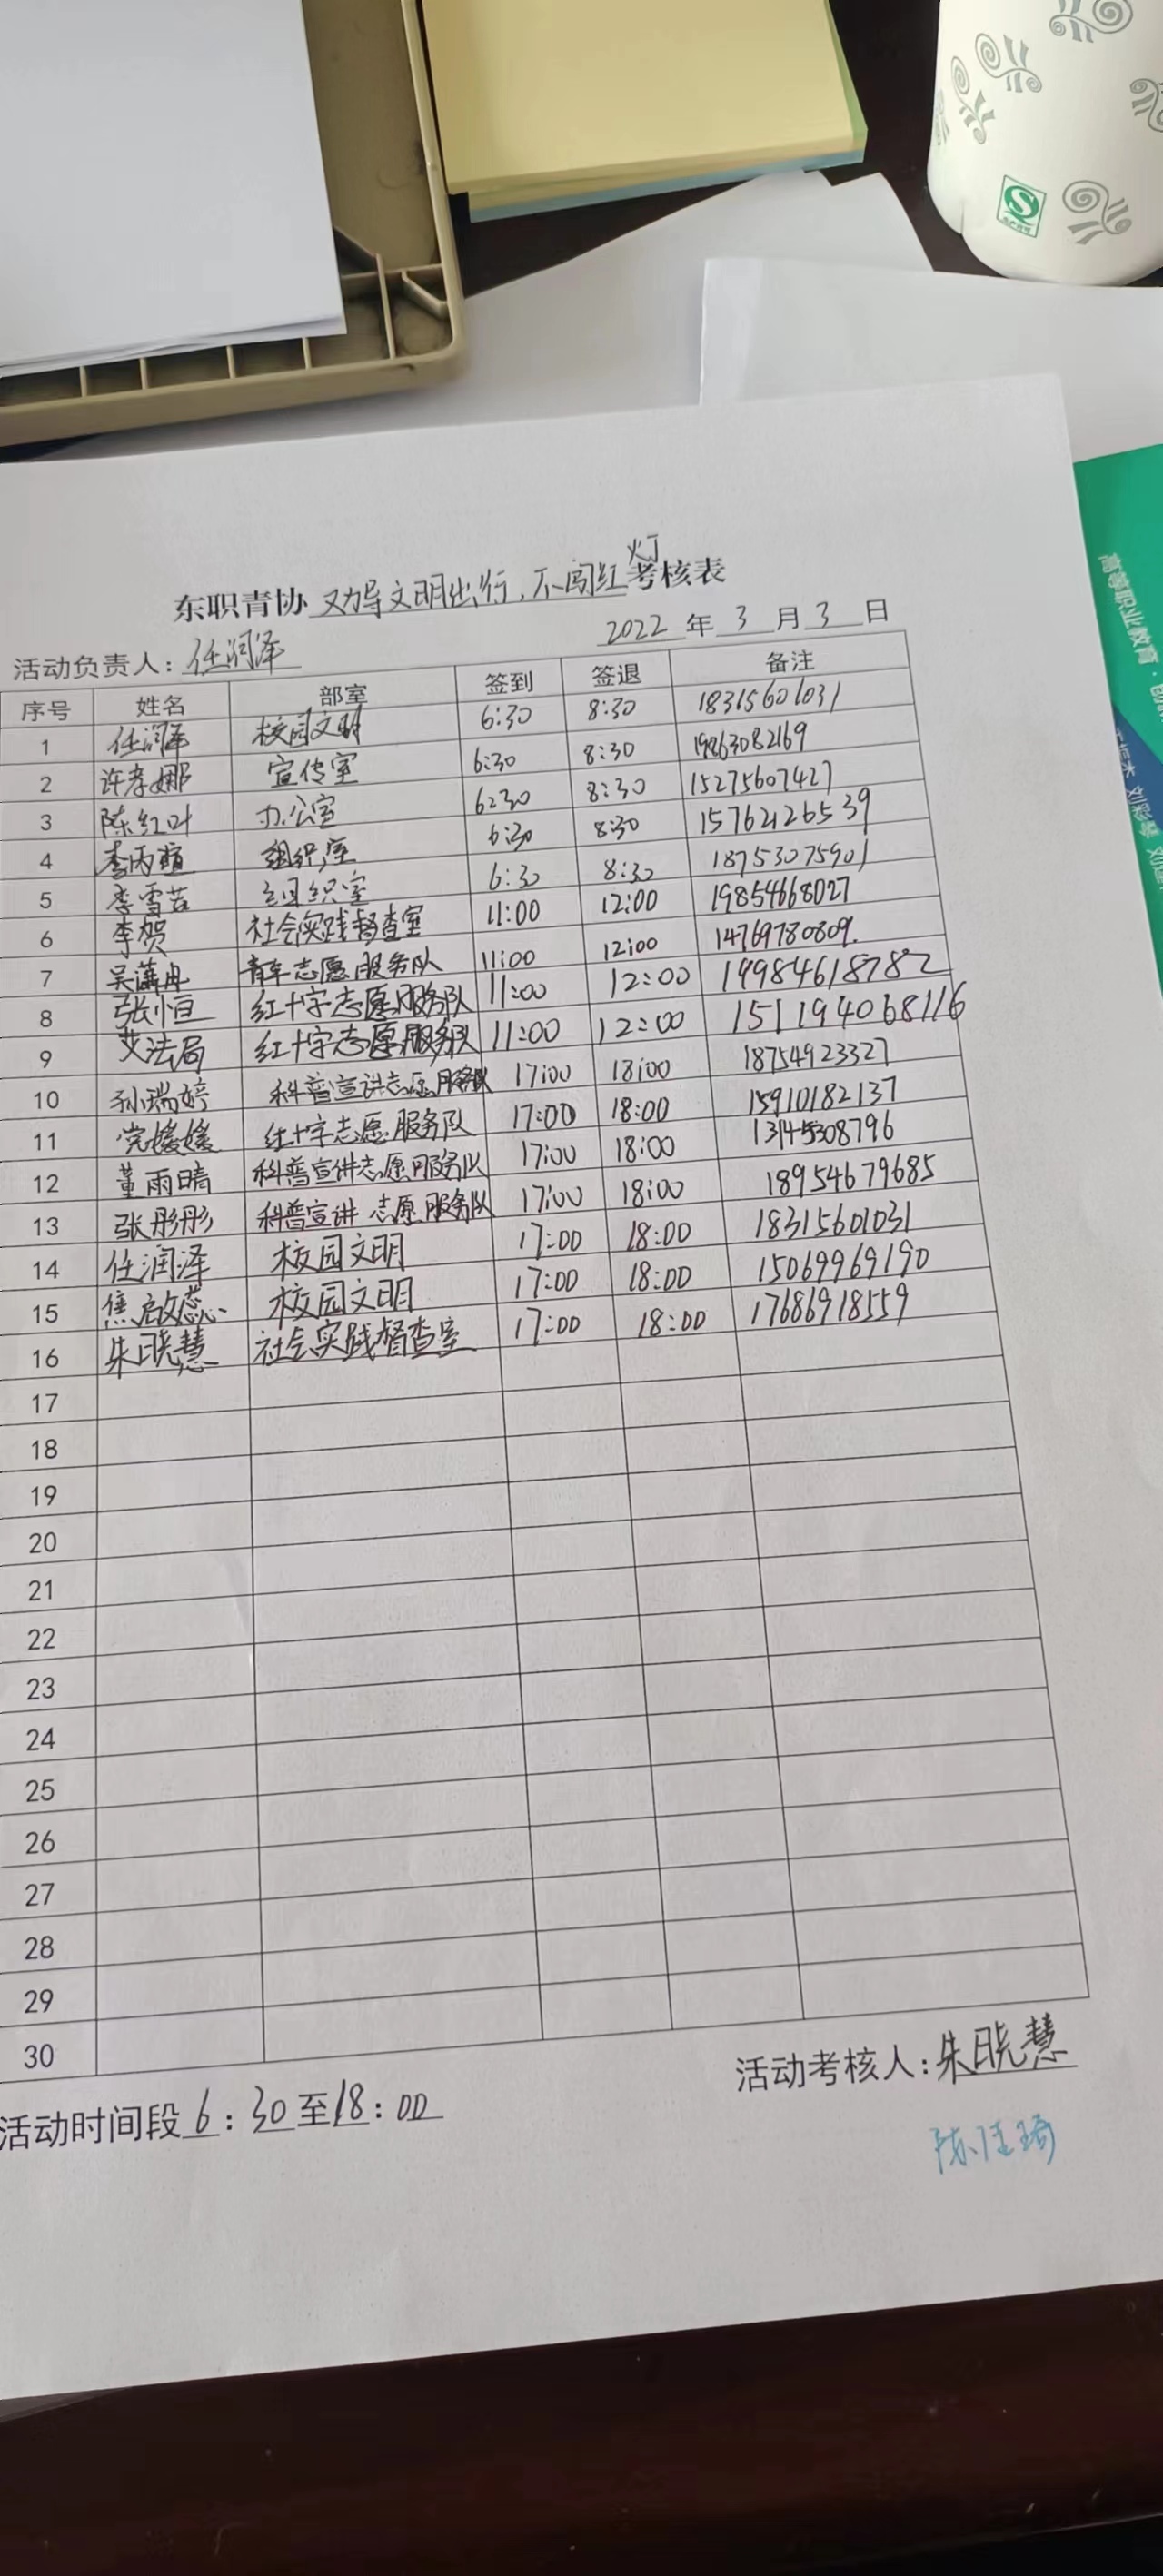 东职青协 劝导文明出行,不闯红灯 考核表
活动负责人:任润泽 2022 年 3 月 3 日
序号 姓名 部室 签到 签退 备注
1 任润泽 校园文明 6:30 8:30 18315601031
2 许孝娜 宣传室 6:30 8:30 19863082169
3 陈红叶 办公室 6:30 8:30 15275607427
4 李丙萱 组织室 6:30 8:30 15762126539
5 李雪芸 组织室 6:30 8:30 18753075901
6 李贺 社会实践督查室 11:00 12:00 19854668027
7 吴潇冉 青年志愿服务队 11:00 12:00 14769780809.
8 张恒 红十字志愿服务队 11:00 12:00 19984618782
9 艾法局 红十字志愿服务队 11:00 12:00 151194068116
10 孙瑞婷 科普宣讲志愿服务队 17:00 18:00 18754923327
11 党媛媛 红十字志愿服务队 17:00 18:00 15910182137
12 董雨晴 科普宣讲志愿服务队 17:00 18:00 13145308796
13 张彤彤 科普宣讲志愿服务队 17:00 18:00 18954679685
14 任润泽 校园文明 17:00 18:00 18315601031
15 焦启蕊 校园文明 17:00 18:00 15069969190
16 朱晓慧 社会实践督查室 17:00 18:00 17686918559
17
18
19
20
21
22
23
24
25
26
27
28
29
30
活动考核人:朱晓慧
活动时间段 6:30至18:00
陈佳琦
高等职业教育